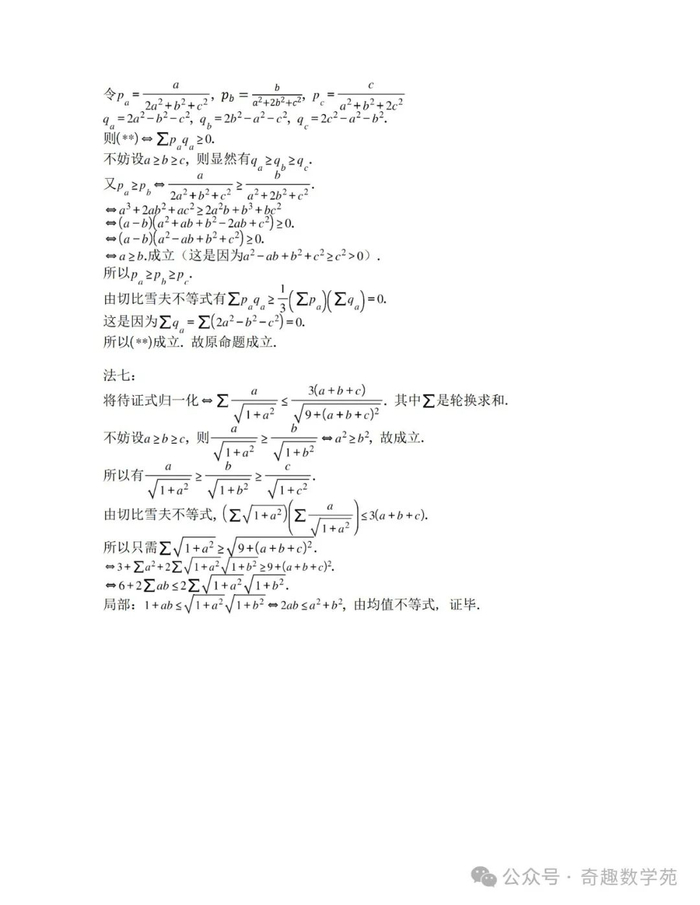 令pₐ = a/(2a²+b²+c²), p_b = b/(a²+2b²+c²), p_c = c/(a²+b²+2c²)
qₐ = 2a²−b²−c², q_b = 2b²−a²−c², q_c = 2c²−a²−b².
则(**)⇔∑pₐqₐ≥0.
不妨设a≥b≥c, 则显然有qₐ≥q_b≥q_c.
又pₐ≥p_b⇔a/(2a²+b²+c²)≥b/(a²+2b²+c²).
⇔a³+2ab²+ac²≥2a²b+b³+bc²
⇔(a−b)(a²+ab+b²−2ab+c²)≥0.
⇔(a−b)(a²−ab+b²+c²)≥0.
⇔a≥b.成立（这是因为a²−ab+b²+c²≥c²>0）.
所以pₐ≥p_b≥p_c.
由切比雪夫不等式有∑pₐqₐ≥1/3(∑pₐ)(∑qₐ)=0.
这是因为∑qₐ=∑(2a²−b²−c²)=0.
所以(**)成立. 故原命题成立.
法七：
将待证式归一化⇔∑a/√(1+a²)≤3(a+b+c)/√(9+(a+b+c)²). 其中∑是轮换求和.
不妨设a≥b≥c, 则a/√(1+a²)≥b/√(1+b²)⇔a²≥b², 故成立.
所以有a/√(1+a²)≥b/√(1+b²)≥c/√(1+c²).
由切比雪夫不等式, (∑√(1+a²))(∑a/√(1+a²))≤3(a+b+c).
所以只需∑√(1+a²)≥√(9+(a+b+c)²).
⇔3+∑a²+2∑√(1+a²)√(1+b²)≥9+(a+b+c)².
⇔6+2∑ab≤2∑√(1+a²)√(1+b²).
局部：1+ab≤√(1+a²)√(1+b²)⇔2ab≤a²+b², 由均值不等式, 证毕.
公众号·奇趣数学苑